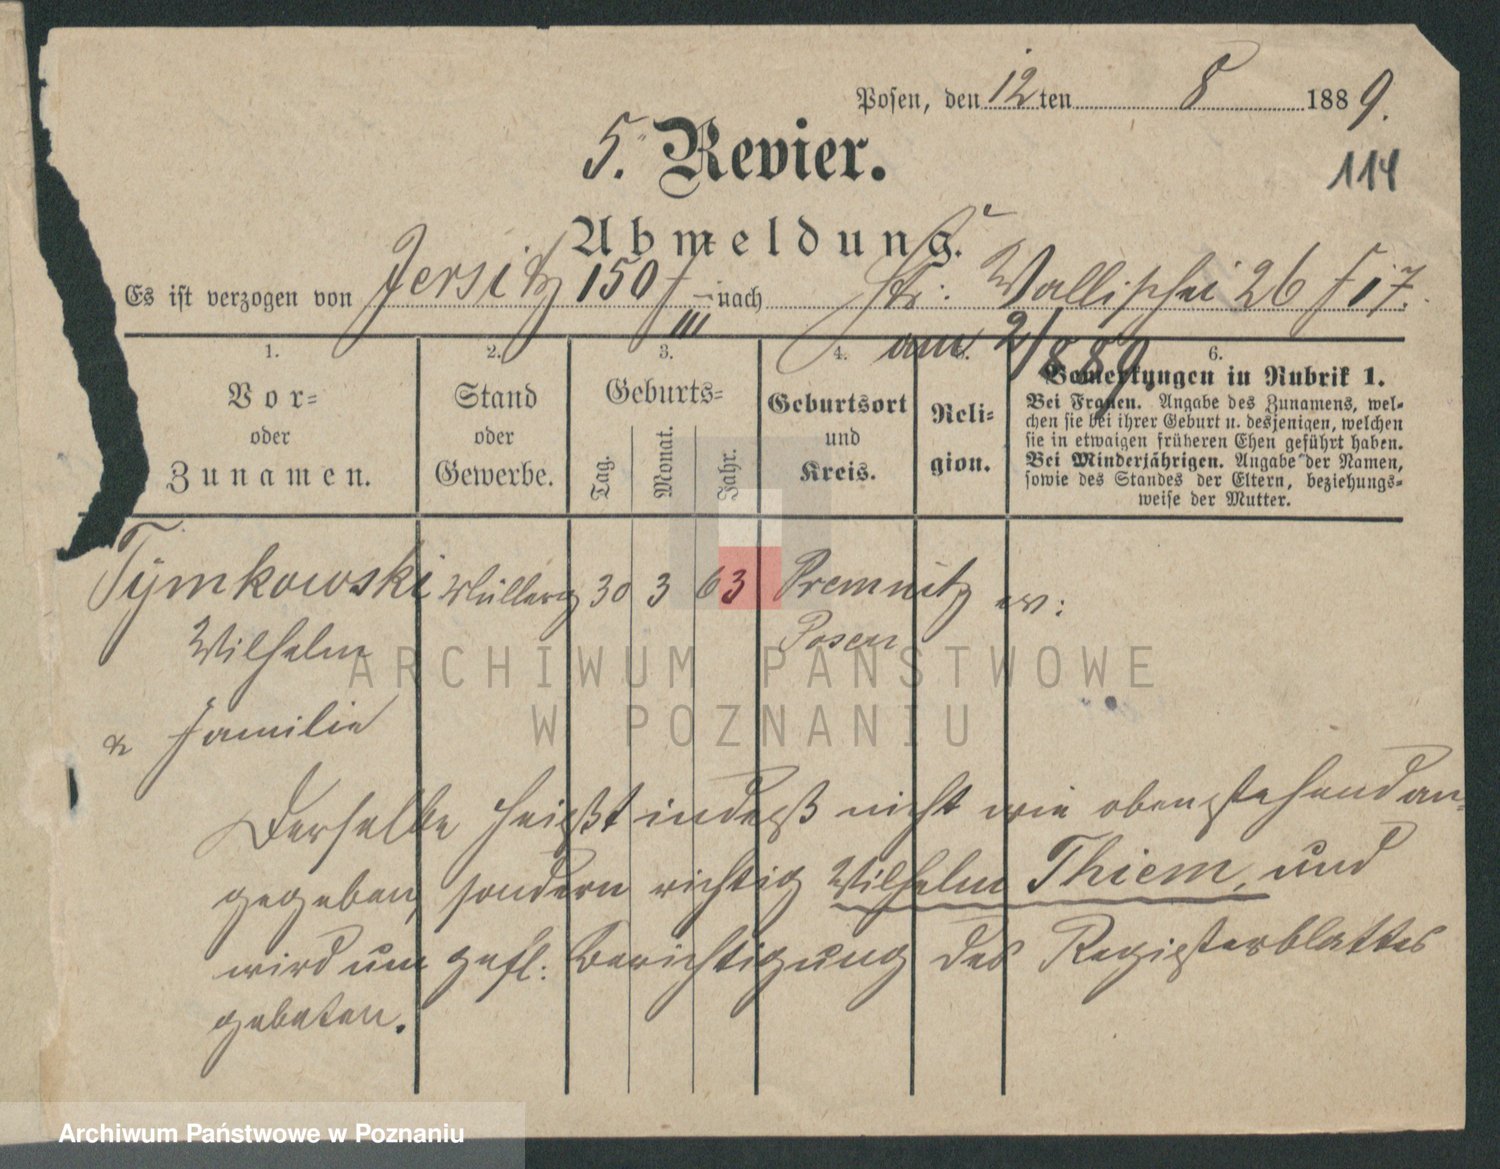 Posen, den 12ten 8 1889.
5. Revier.
114
Abmeldung.
Es ist verzogen von Jersitz 150 nach Str. Wallischei 26 f 17.
III
am 2/889
1.
Vor-
oder
Zunamen.
2.
Stand
oder
Gewerbe.
3.
Geburts-
Tag.
Monat.
Jahr.
4.
Geburtsort
und
Kreis.
5.
Reli-
gion.
6.
Bemerkungen in Rubrik 1.
Bei Frauen. Angabe des Zunamens, wel-
chen sie bei ihrer Geburt u. desjenigen, welchen
sie in etwaigen früheren Ehen geführt haben.
Bei Minderjährigen. Angabe der Namen,
sowie des Standes der Eltern, beziehungs-
weise der Mutter.
Tymkowski 30 3 63 Premnitz ev:
Wilhelm Posen
& Familie
Derselbe heißt indeß nicht wie obenstehend an-
gegeben, sondern richtig Wilhelm Thiem, und
wird um gefl: Berichtigung des Registerblattes
gebeten.
ARCHIWUM PAŃSTWOWE
W POZNANIU
Archiwum Państwowe w Poznaniu